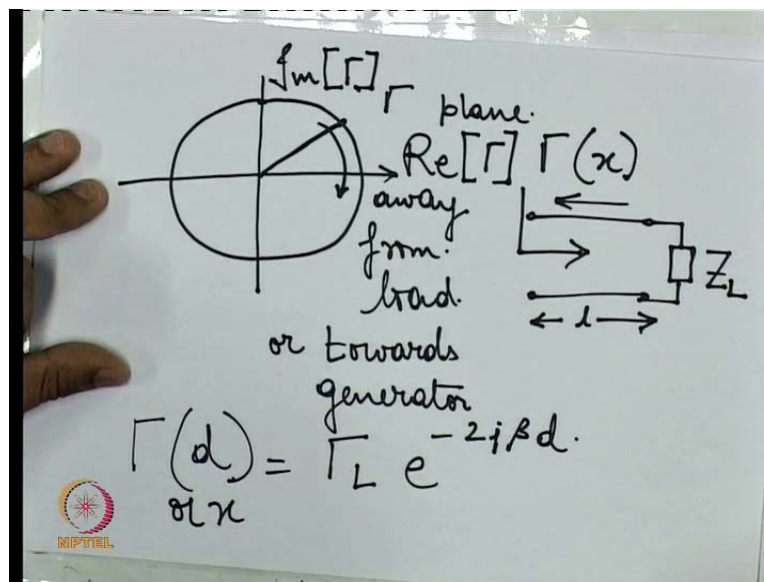 Im[Γ]
Γ plane.
Re[Γ] Γ(x)
away
from.
load.
or towards
generator
Z_L
← l →
Γ(d) = Γ_L e^{-2jβd}.
or x
NPTEL